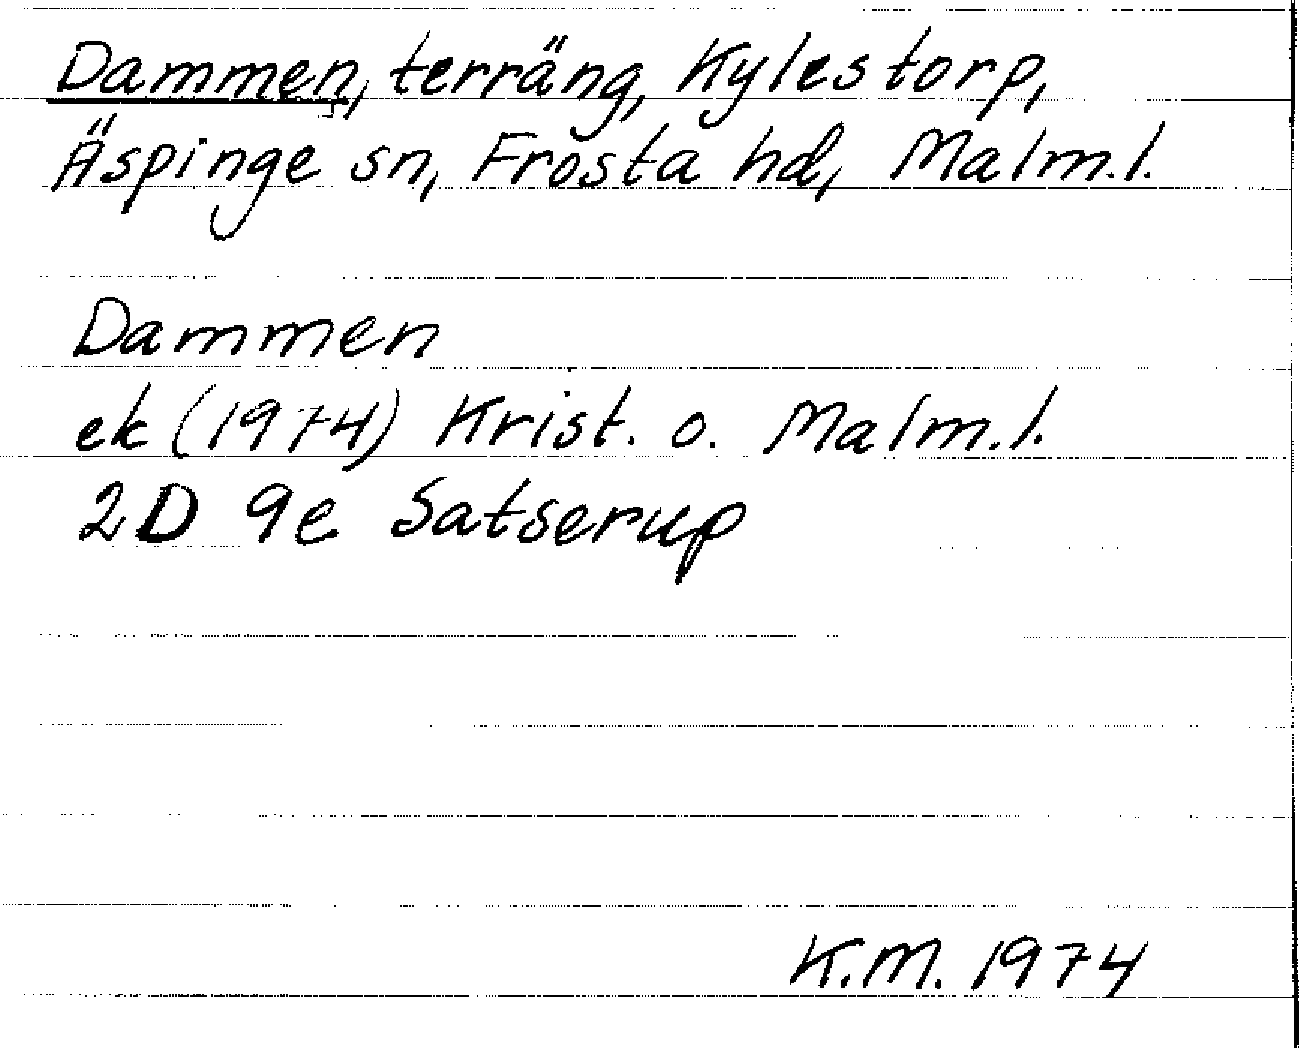 Dammen, terräng, Kylestorp,
Äspinge sn, Frosta hd, Malm.l.
Dammen
ek (1974) Krist. o. Malm.l.
2D 9e Satserup
K.M. 1974